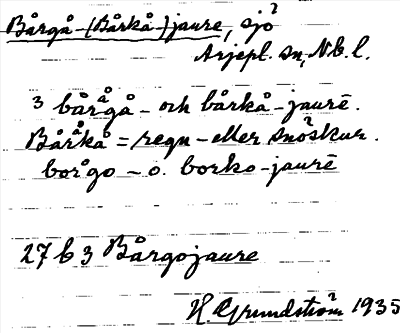 Bårgå-(Bårkå-)jaure, sjö
Arjepl. sn, Nb. l.
3 bårgå- och bårkå-jaurē.
Bårkå = regn- eller snöskur.
borgo- o. borko-jaurē
27 b 3 Bårgojaure
H. Grundström 1935